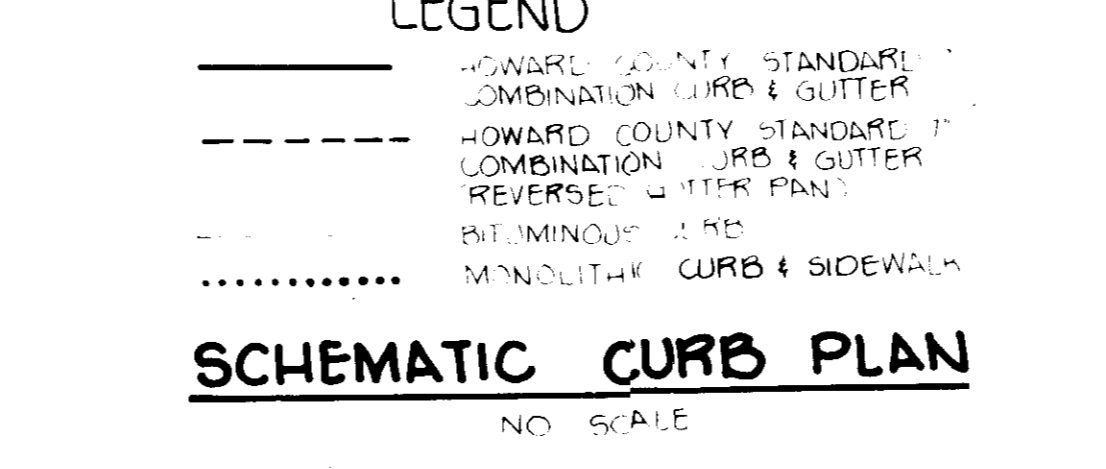 LEGEND
HOWARD COUNTY STANDARD
COMBINATION CURB & GUTTER
HOWARD COUNTY STANDARD 7"
COMBINATION CURB & GUTTER
(REVERSED GUTTER PAN)
BITUMINOUS CURB
MONOLITHIC CURB & SIDEWALK
SCHEMATIC CURB PLAN
NO SCALE